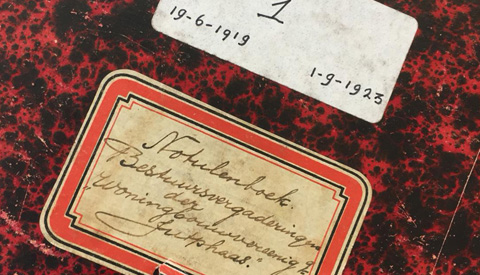 1
19-6-1919
1-9-1923
Notulenboek
Bestuursvergaderingen
der
Woningbouwvereenig.
Jutphaas.